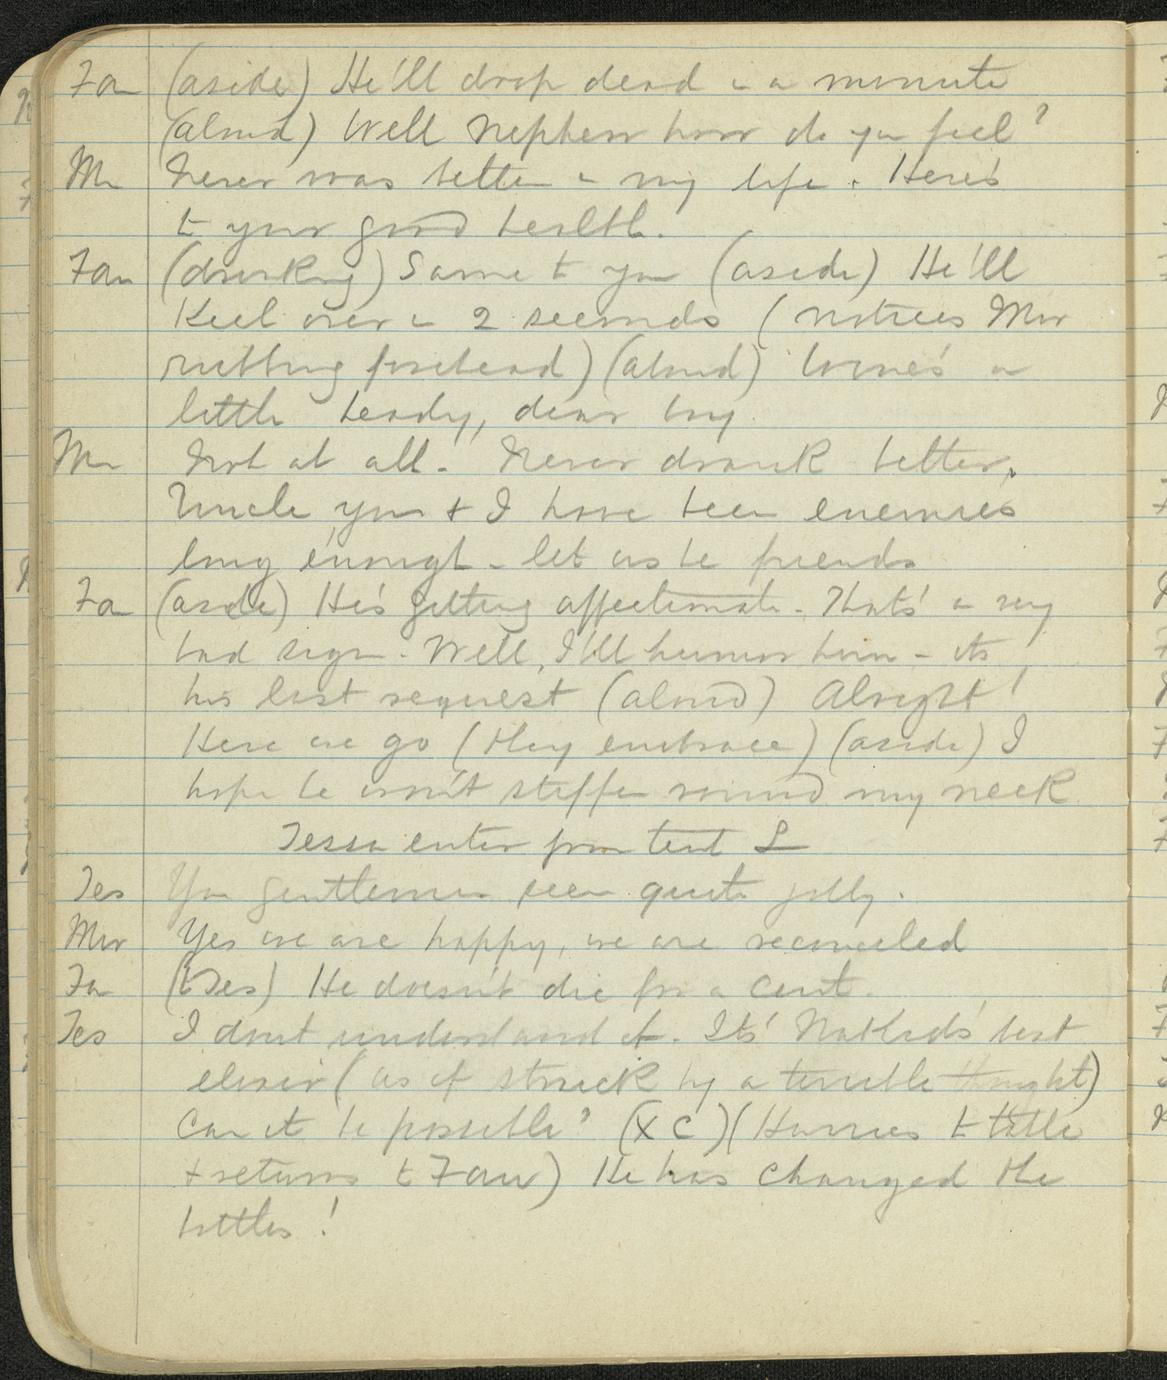 Fan (aside) He'll drop dead in a minute
(aloud) Well Nephew how do you feel?
Mr Never was better in my life. Here's
to your good health.
Fan (drinking) Same to you (aside) He'll
Keel over in 2 seconds (notices Mur
rubbing forehead) (aloud) Wine's a
little heady, dear boy.
Mr Not at all. Never drank better.
Uncle you & I have been enemies
long enough - let us be friends
Fa (aside) He's getting affectionate. That's a very
bad sign. Well, I'll humor him - its
his last request (aloud) Alright!
Here we go (they embrace) (aside) I
hope he won't stiffen round my neck
Tessa enter from tent L
Tes You gentlemen seem quite jolly.
Mur Yes we are happy, we are reconciled
Fa (to Tes) He doesn't die for a cent.
Tes I dont understand it. Its' best
elixir (as if struck by a terrible thought)
Can it be possible? (X C) (Hurries to table
& returns to Fan) He has changed the
bottles!